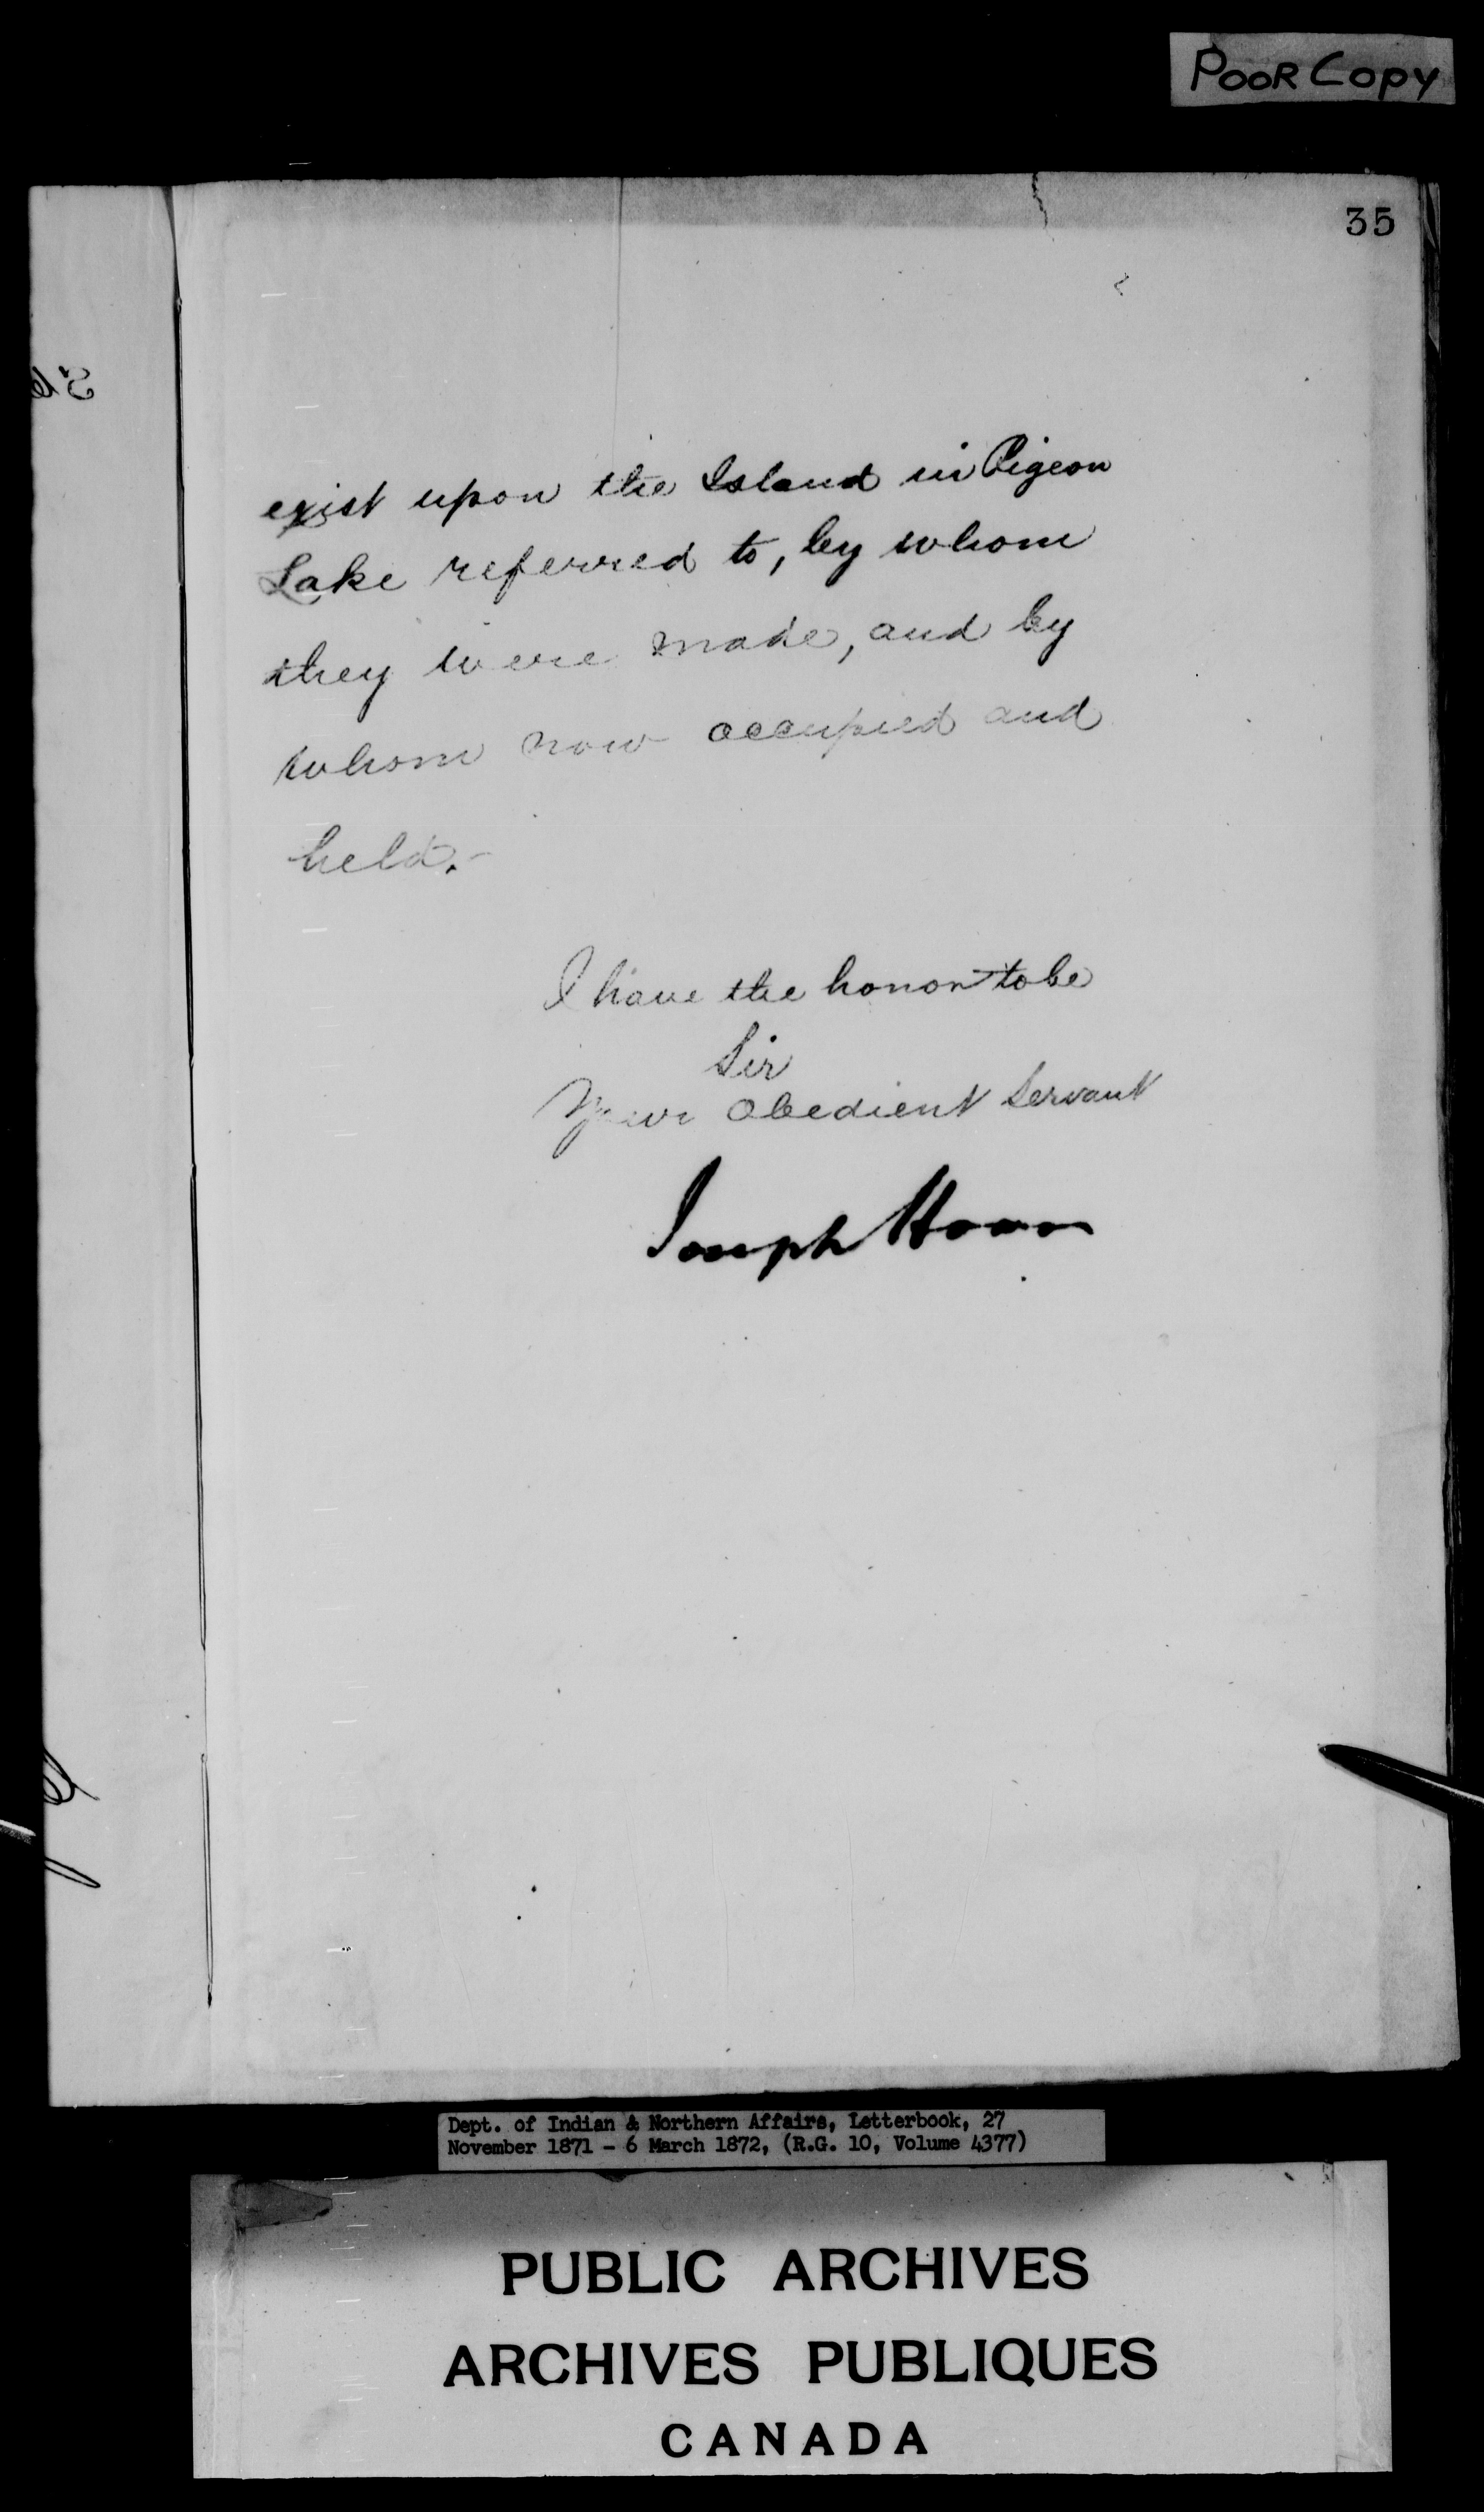 POOR COPY
35
exist upon the Island in Pigeon
Lake referred to, by whom
they were made, and by
whom now occupied and
held.-
I have the honor to be
Sir
Your Obedient Servant
Joseph Howe
Dept. of Indian & Northern Affairs, Letterbook, 27
November 1871 - 6 March 1872, (R.G. 10, Volume 4377)
PUBLIC ARCHIVES
ARCHIVES PUBLIQUES
CANADA